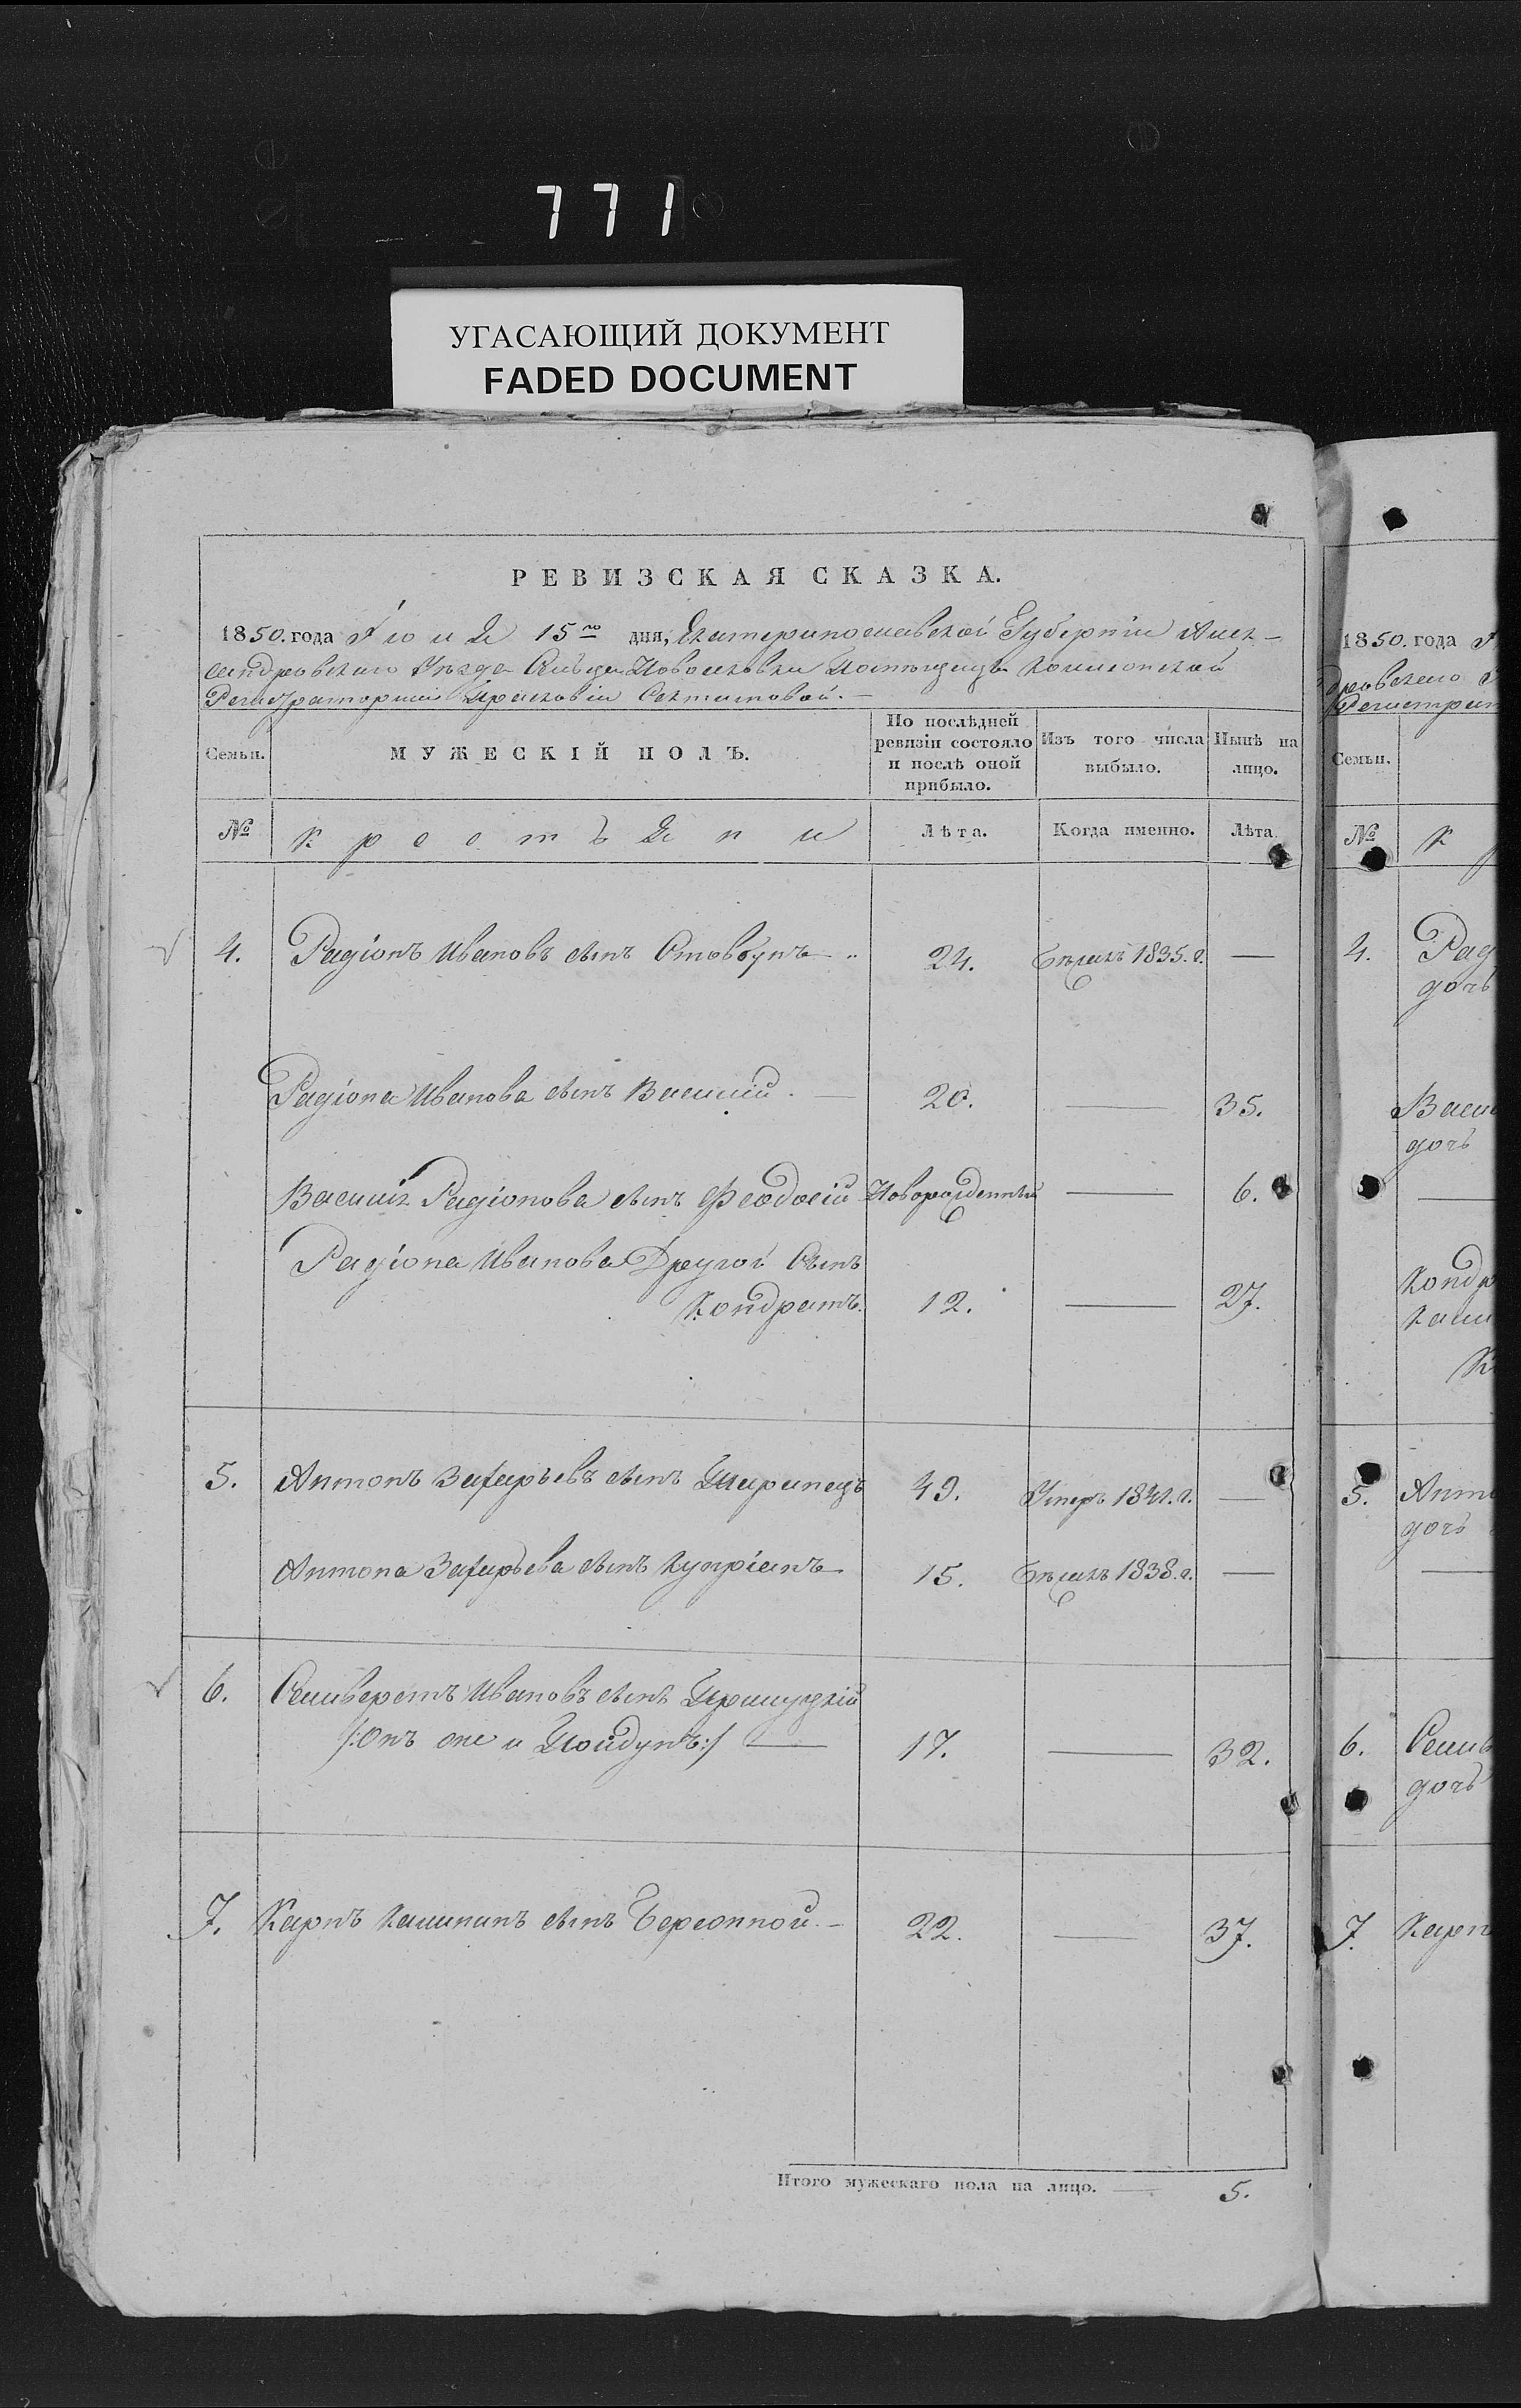 771
УГАСАЮЩИЙ ДОКУМЕНТ
FADED DOCUMENT
РЕВИЗСКАЯ СКАЗКА.
1850. года Іюня 15го дня, Екатеринославской Губерніи Алек-
сандровскаго Уѣзда Сельца Помѣщицы Колежской
Регистраторши Прасковіи
Семьи.
МУЖЕСКІЙ ПОЛЪ.
По послѣдней ревизіи состояло и послѣ оной прибыло.
Изъ того числа выбыло.
Нынѣ на лицо.
№ Крестьяни Лѣта. Когда именно. Лѣта
4. Радіонъ Ивановъ сынъ Стовбунъ 24. Бѣжалъ 1835. г. —
Радіона Иванова сынъ Василій. — 20. — 35.
Василія Радіонова сынъ Феодосій Новорожденный — 6.
Радіона Иванова Другой Сынъ
Кондратъ. 12. — 27.
5. Антонъ Захарьевъ сынъ 49. Умеръ 1841. г. —
Антона Захарьева сынъ Купріянъ 15. Бѣжалъ 1838. г. —
6. Селиверстъ Ивановъ сынъ
/:Онъ же и :/ — 17. — 32.
7. Карпъ Калининъ сынъ Березиной. — 22. — 37.
Итого мужескаго пола на лицо. — 5.
1850. года
Семьи.
№ К
4. Рад
дочь
Васи
дочь
Кондр
5. Анто
дочь
6. Сели
дочь
7. Карп